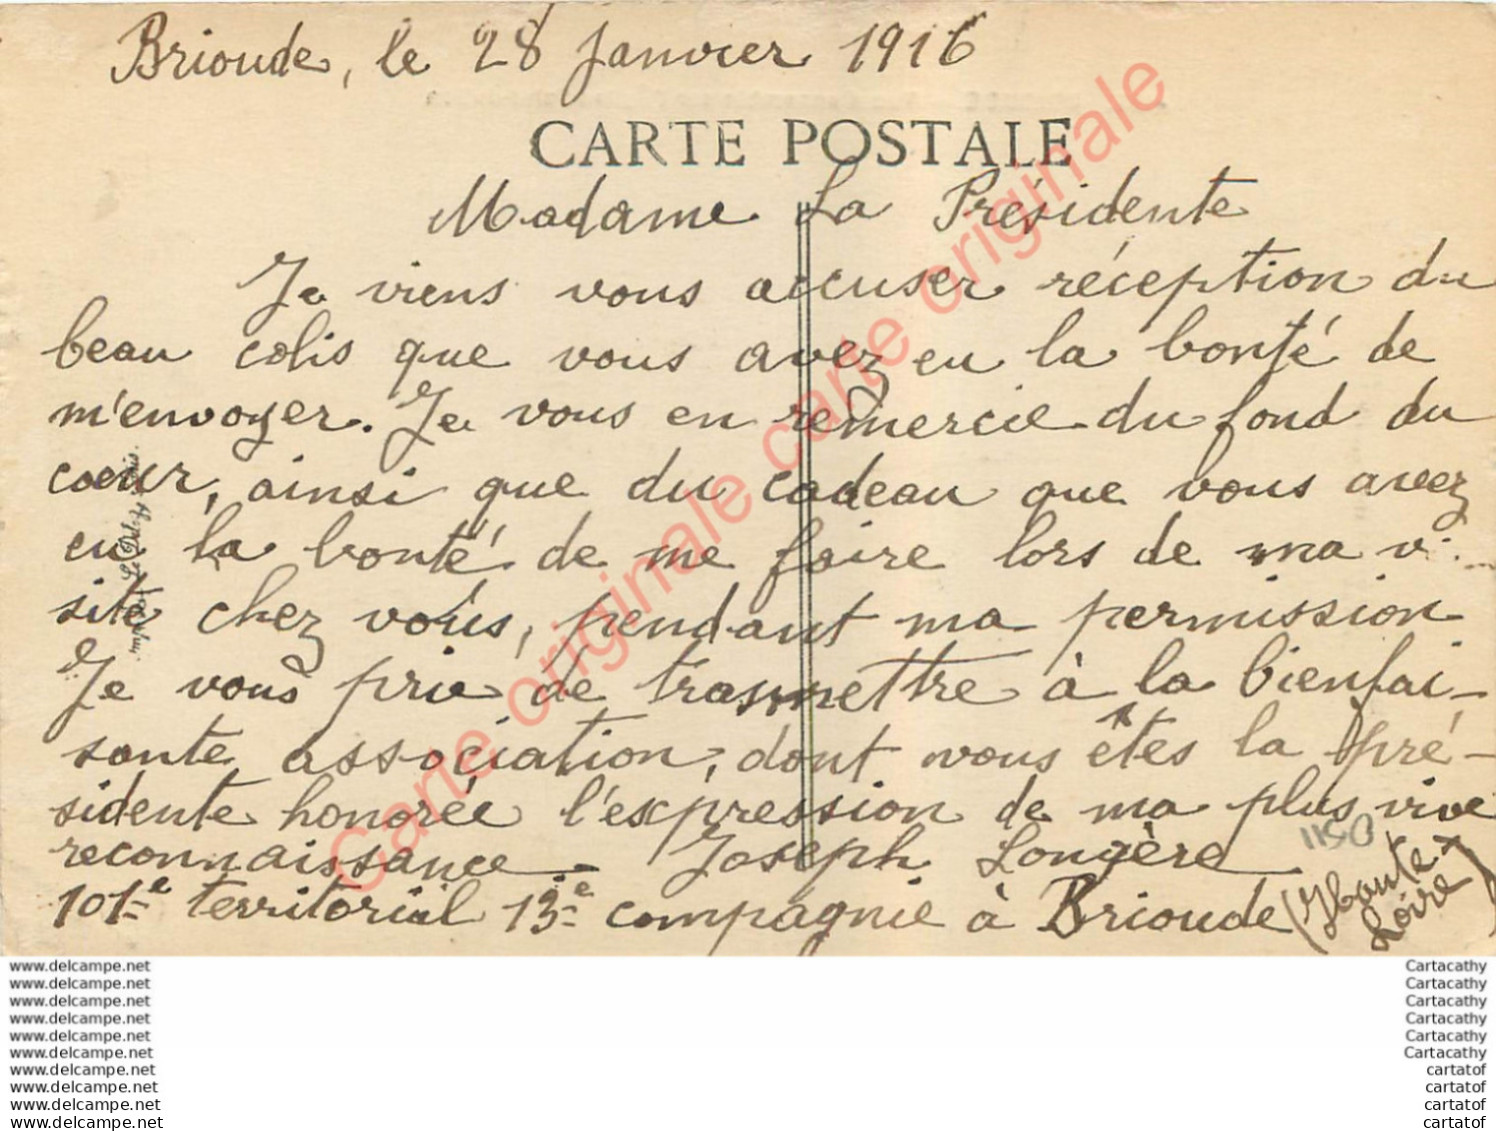 Brioude, le 28 Janvier 1916
CARTE POSTALE
Madame La Présidente
Je viens vous accuser réception du
beau colis que vous avez eu la bonté de
m'envoyer. Je vous en remercie du fond du
cœur, ainsi que du cadeau que vous avez
eu la bonté de me faire lors de ma vi-
site chez vous, pendant ma permission
Je vous prie de trasmettre à la bienfai-
sante association, dont vous êtes la pré-
sidente honorée l'expression de ma plus vive
reconnaissance - Joseph Longère
101e territorial 13e compagnie à Brioude (Haute-
Loire)
1150
Carte originale carte originale carte originale
www.delcampe.net
www.delcampe.net
www.delcampe.net
www.delcampe.net
www.delcampe.net
www.delcampe.net
www.delcampe.net
www.delcampe.net
www.delcampe.net
www.delcampe.net
Cartacathy
Cartacathy
Cartacathy
Cartacathy
Cartacathy
Cartacathy
cartatof
cartatof
cartatof
cartatof